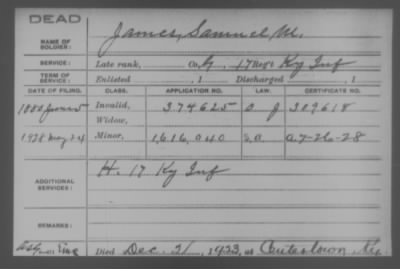 DEAD
NAME OF SOLDIER: James, Samuel M.
SERVICE: Late rank, Co. G, 17 Reg't Ky Inf
TERM OF SERVICE: Enlisted , 1 Discharged , 1
DATE OF FILING. CLASS. APPLICATION NO. LAW. CERTIFICATE NO.
1880 Invalid, 374625 309618
Widow,
1928 May 24 Minor, 1,616,040 A-7-26-28
ADDITIONAL SERVICES: H. 17 Ky Inf
REMARKS:
Died Dec. 21, 1923, at Centertown, Ky.